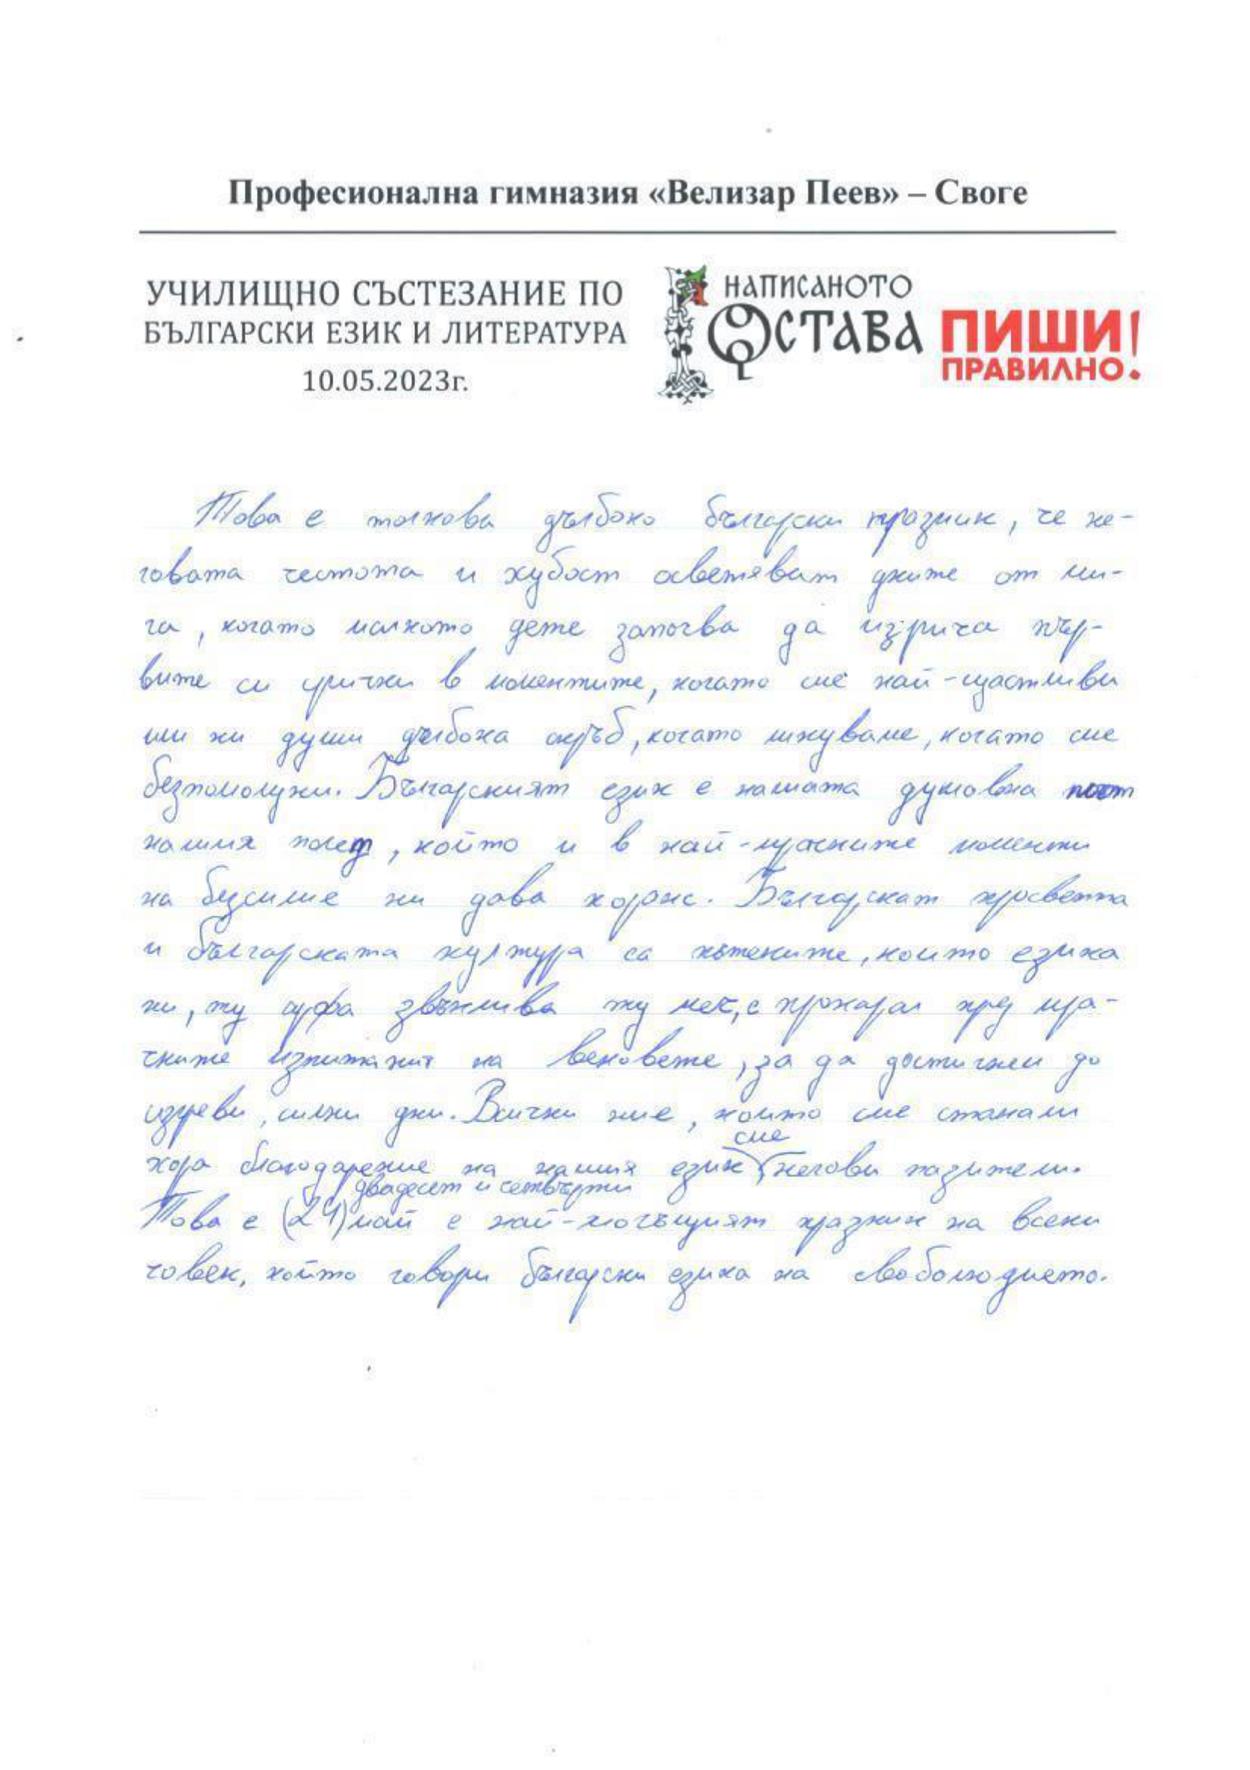 Професионална гимназия «Велизар Пеев» – Своге
УЧИЛИЩНО СЪСТЕЗАНИЕ ПО
БЪЛГАРСКИ ЕЗИК И ЛИТЕРАТУРА
10.05.2023г.
НАПИСАНОТО
ОСТАВА
ПИШИ!
ПРАВИЛНО
Това е толкова дълбоко български празник, че не-
говата чистота и хубост осветяват дните от ми-
га, когато малкото дете започва да изрича пър-
вите си срички в моментите, когато сме най-щастливи
или ни души дълбока скръб, когато ликуваме, когато сме
безпомощни. Българският език е нашата духовна
нашия полет, който и в най-мрачните моменти
на безсилие ни дава кораж. Българскат просвета
и българската култура са пътеките, които езика
ни, ту арфа звънлива ту меч, е прокарал през мра-
чните изпитания на вековете, за да достигнем до
изгреви, силни дни. Всички ние, които сме станали
хора благодарение на нашия език сме негови пазители.
двадесет и четвърти
Това е (24) май е най-могъщият празник на всеки
човек, който говори български езика на свободолюдието.